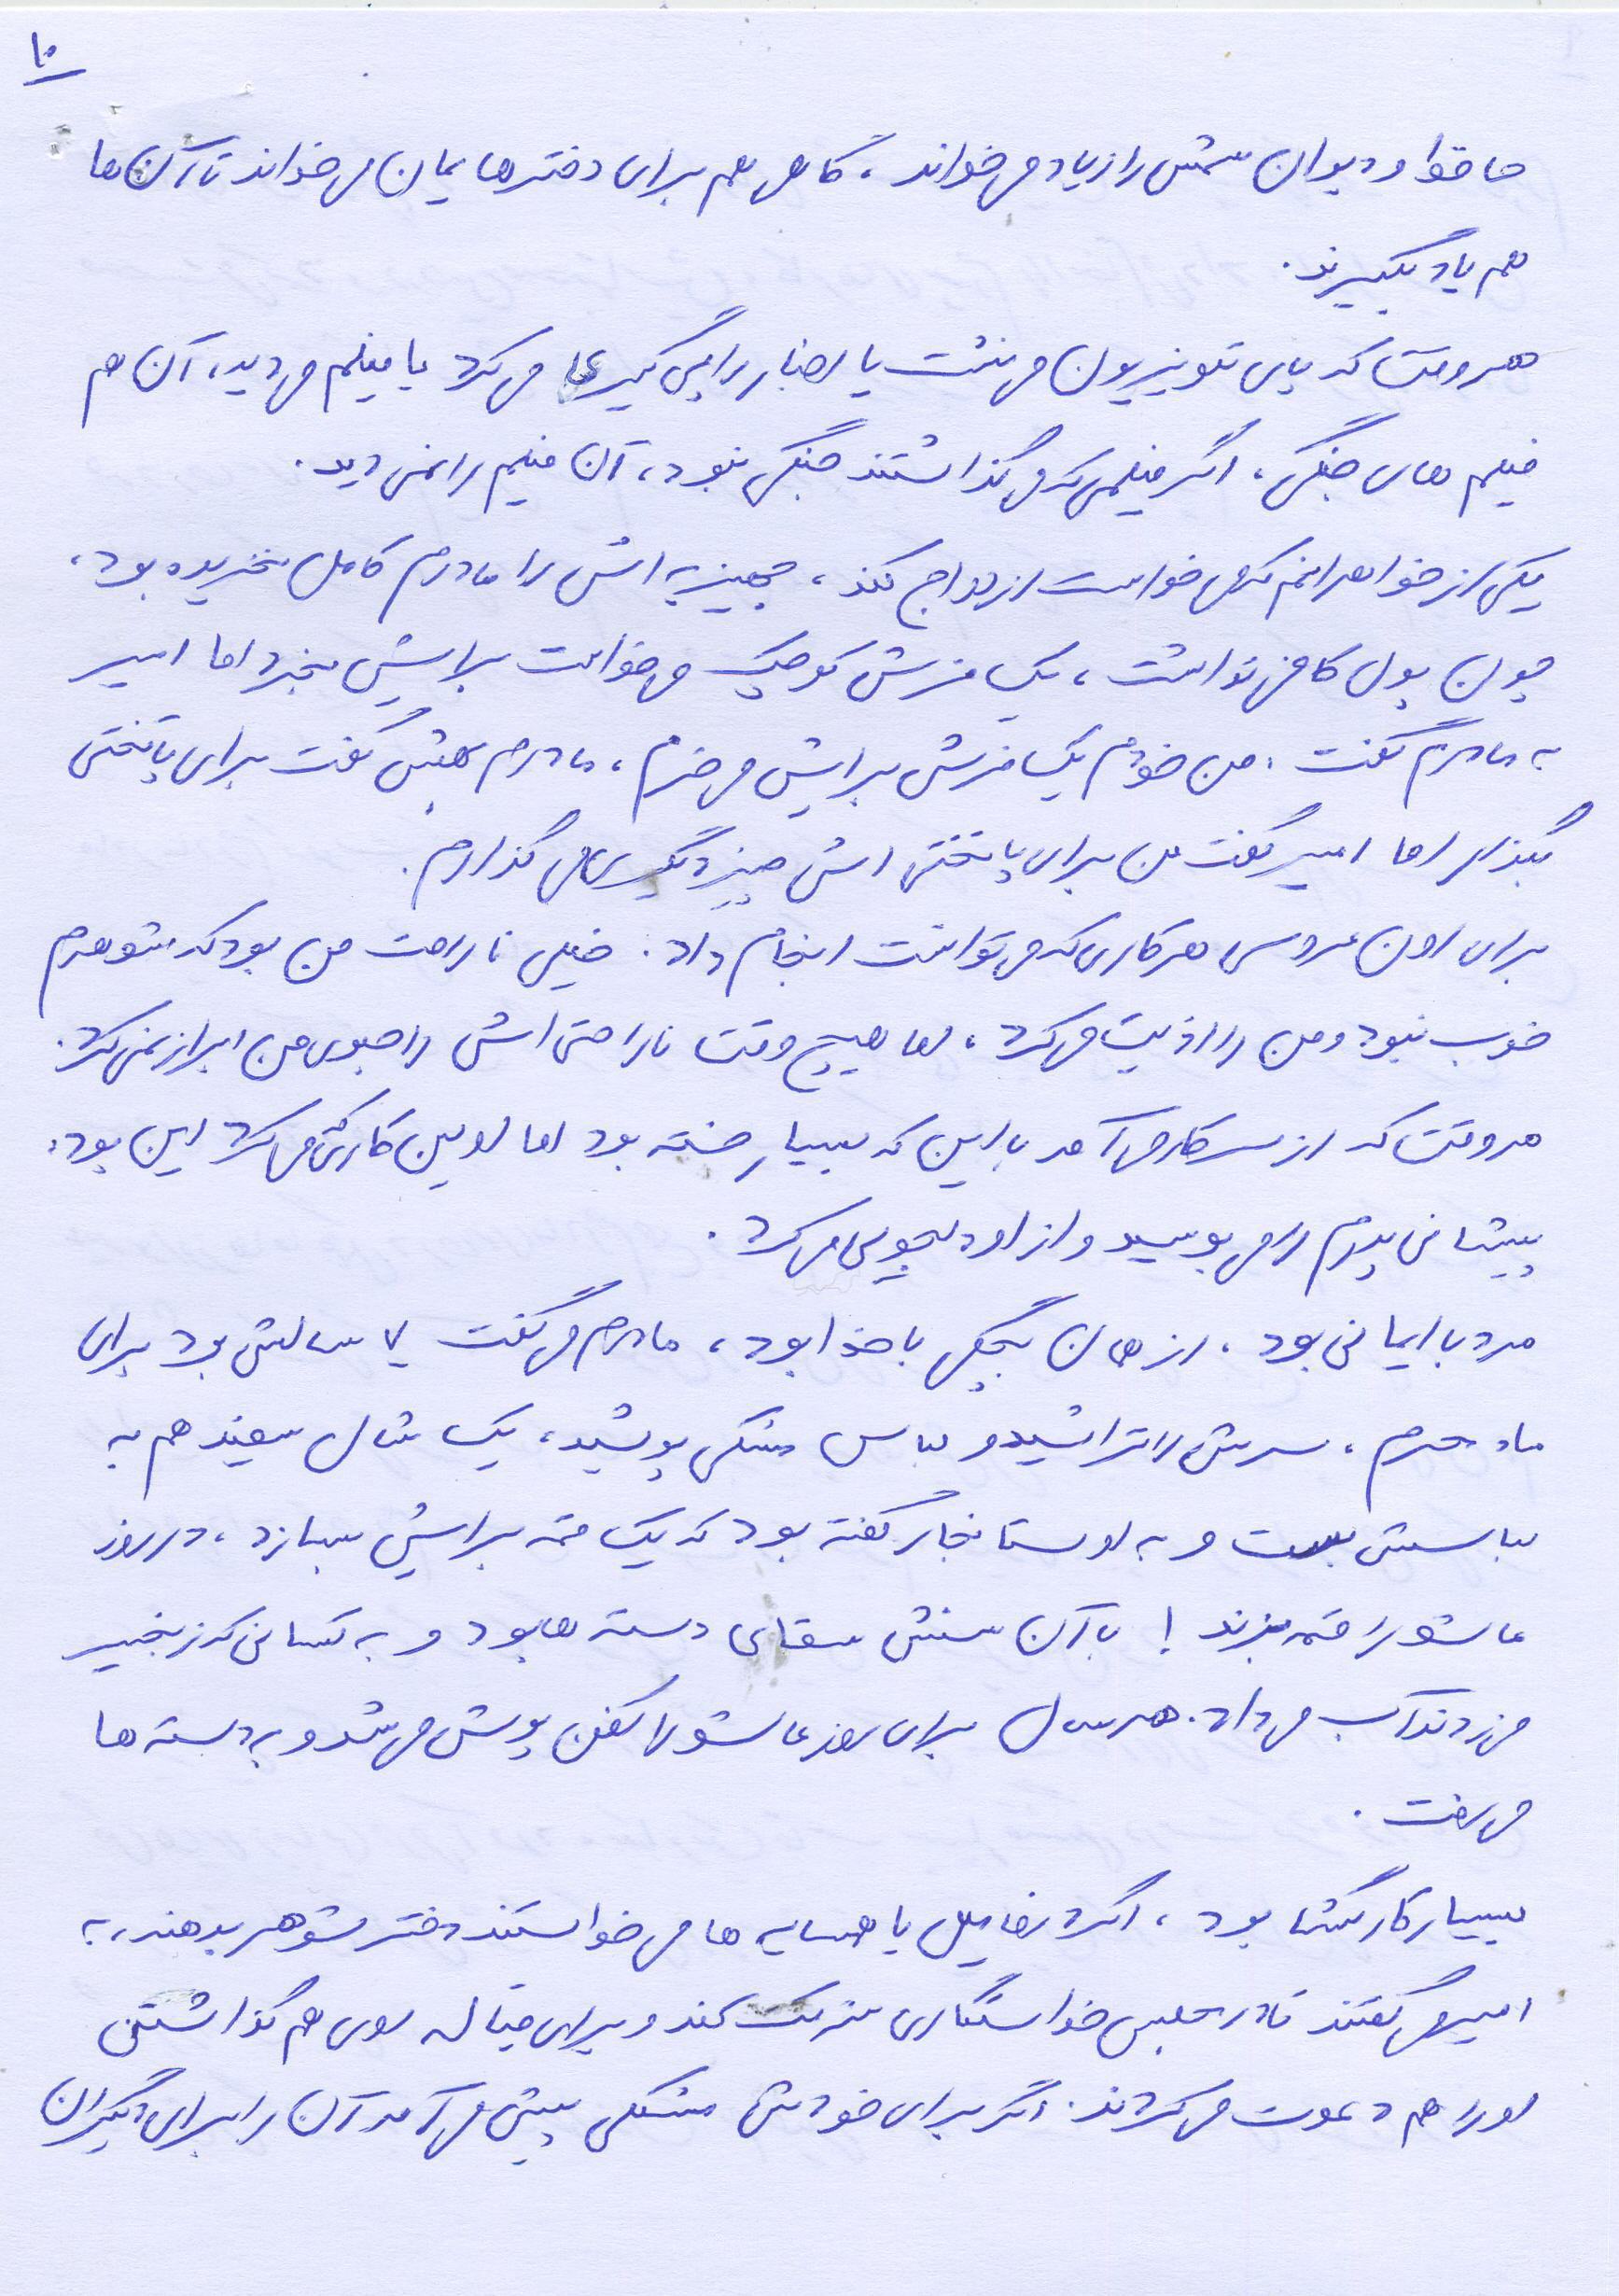 ۱۰
حافظ و دیوان شمس را زیاد می خواند، گاهی هم برای دخترهایمان می خواند تا آن ها
هم یاد بگیرند.
هر وقت که پای تلویزیون می نشست یا اخبار را پی گیری می کرد یا فیلم می دید، آن هم
فیلم های جنگی، اگر فیلمی که می گذاشتند جنگی نبود، آن فیلم را نمی دید.
یکی از خواهرانم که می خواست ازدواج کند، جهیزیه اش را مادرم کامل نخریده بود،
چون پول کافی نداشت، یک فرش کوچک می خواست برایش بخرد اما امیر
به مادرم گفت: من خودم یک فرش برایش می خرم، مادرم بهش گفت برای پاتختی
بگذار اما امیر گفت من برای پاتختی اش چیز دیگری می گذارم.
برای اون عروسی هر کاری که می توانست انجام داد. خیلی ناراحت من بود که شوهرم
خوب نبود و من را اذیت می کرد، اما هیچ وقت ناراحتی اش را جلوی من ابراز نمی کرد.
هر وقت که از سر کار می آمد با این که بسیار خسته بود اما اولین کاری که می کرد این بود:
پیشانی پدرم را می بوسید و از او دلجویی می کرد.
مرد با ایمانی بود، از همان بچگی با خدا بود، مادرم می گفت ۷ سالش بود برای
ماه محرم، سرش را تراشید و لباس مشکی پوشید، یک شال سفید هم به
لباسش بست و به اوستا نجار گفته بود که یک قمه برایش بسازد، در روز
عاشورا قمه بزند! با آن سنش سقای دسته ها بود و به کسانی که زنجیر
می زدند آب می داد. هر سال برای روز عاشورا کفن پوش می شد و به دسته ها
می رفت.
بسیار کارگشا بود، اگر در فامیل یا همسایه ها می خواستند دختر شوهر بدهند، به
امیر می گفتند تا در مجلس خواستگاری شرکت کند و برای قباله روی هم گذاشتن
او را هم دعوت می کردند. اگر برای خودش مشکلی پیش می آمد آن را برای دیگران